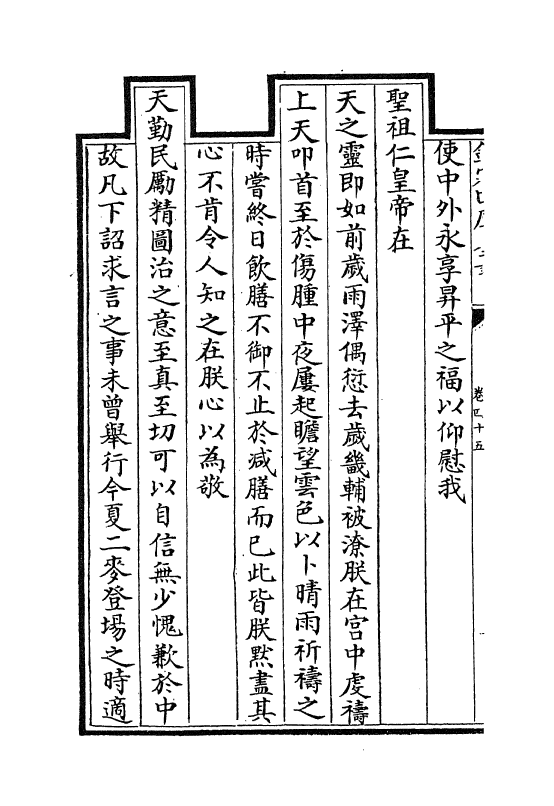 卷四十五
使中外永享昇平之福以仰慰我
聖祖仁皇帝在
天之靈即如前歲雨澤偶愆去歲畿輔被潦朕在宫中虔禱
上天叩首至於傷腫中夜屢起瞻望雲色以卜晴雨祈禱之
時嘗終日飲膳不御不止於減膳而已此皆朕黙盡其
心不肯令人知之在朕心以為敬
天勤民勵精圖治之意至真至切可以自信無少愧歉於中
故凡下詔求言之事未曾舉行今夏二麥登場之時適